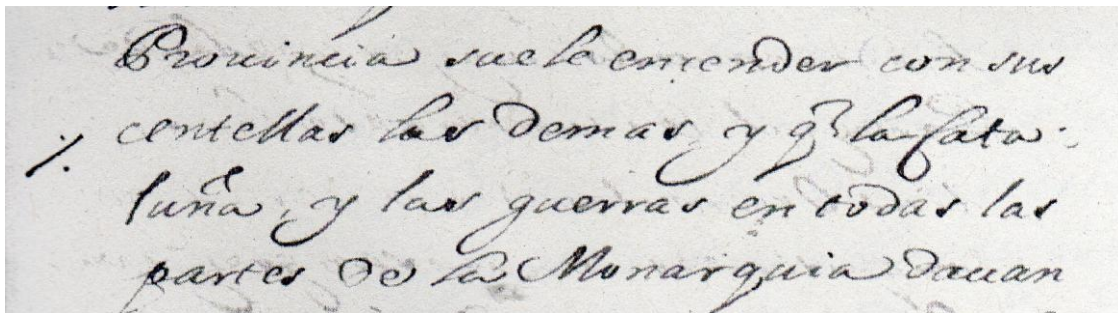 Prouincia suele encender con sus
centellas las demas, y q̃ la Cata-
luña, y las guerras en todas las
partes de la Monarquia dauan